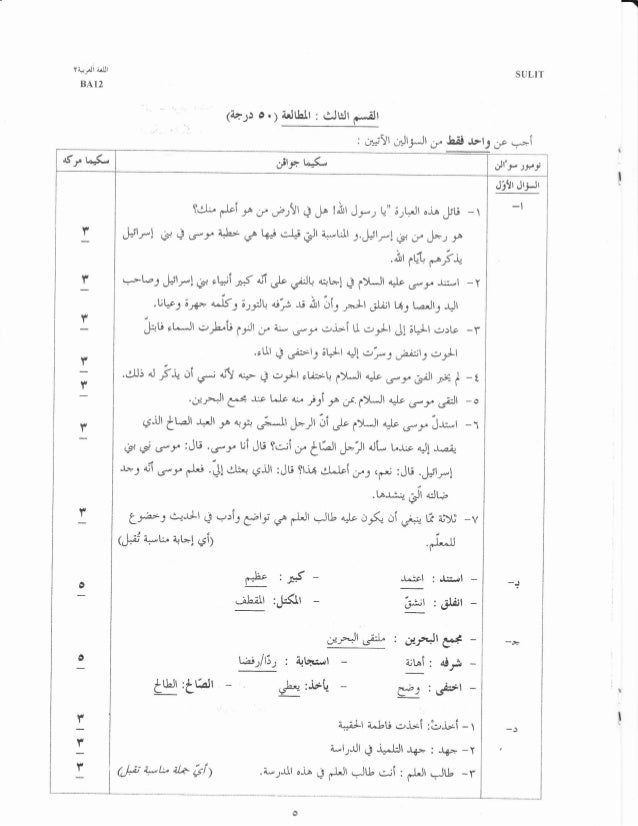 اللغة العربية٢
BA12
SULIT
القسم الثالث : المطالعة (٥٠ درجة)
أجب عن واحد فقط من السؤالين الآتيين :
نومبور سوءالن سكيما جواڤن سكيما مركه
السؤال الأوّل
أ-
١- قائل هذه العبارة "يا رسول الله! هل في الأرض من هو أعلم منك؟
هو رجل من بني إسرائيل. و المناسبة التي قيلت فيها هي خطبة موسى في بني إسرائيل
يذكّرهم بأيّام الله.
٣
٢- استند موسى عليه السلام في إجابته بالنفي على أنّه كبير أنبياء بني إسرائيل وصاحب
اليد والعصا وبها انفلق الحجر وأن الله قد شرّفه بالتورة وكلّمه جهرة وعيانا.
٣
٣- عادت الحياة إلى الحوت لما أخذت موسى سنة من النوم فأمطرت السماء فابتلّ
الحوت وانتفض وسرّت إليه الحياة واختفى في الماء.
٣
٤- لم يخبر الفتى موسى عليه السلام باختفاء الحوت في حينه لأنّه نسي أن يذكّر له ذلك.
٣
٥- التقى موسى عليه السلام بمن هو أوفر منه علما عند مجمع البحرين.
٣
٦- استدلّ موسى عليه السلام على أنّ الرجل المسجّى بثوبه هو العبد الصالح الذي
يقصد إليه عندما سأله الرّجل الصّالح من أنت؟ قال أنا موسى. قال: موسى نبي بني
إسرائيل. قال: نعم، ومن أعلمك بهذا؟ قال: الذي بعثك إليّ. فعلم موسى أنّه وجد
ضالته الّتي ينشدها.
٣
٧- ثلاثة ممّا ينبغي أن يكون عليه طالب العلم هي تواضع وأدب في الحديث وخضوع
للمعلّم. (أي إجابة مناسبة تُقبل)
٣
ب-
- استند : اعتمد - كبير : عظيم
- انفلق : انشقّ - المكتل: المقطف
٥
ج-
- مجمع البحرين : ملتقى البحرين
- شرفه : أهانة - استجابة : ردّا/رفضا
- اختفى : وضح - يأخذ: يعطي - الصّالح: الطالح
٥
د-
١- أخذت: أخذت فاطمة الحقيبة
٣
٢- جهد : جهد التلميذ في الدراسة
٣
٣- طالب العلم : أنت طالب العلم في هذه المدرسة. (أيّ جملة مناسبة تقبل)
٣
٥